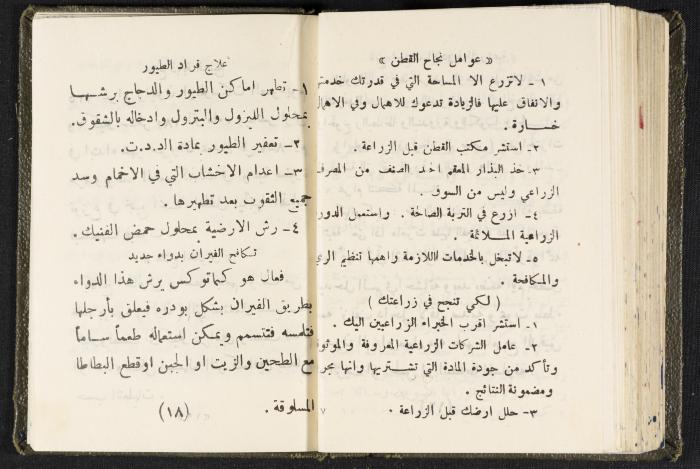 « عوامل نجاح القطن »
١ - لاتزرع الا المساحة التي في قدرتك خدمتها
والانفاق عليها فالزيادة تدعوك للاهمال وفي الاهمال
خسارة .
٢ - استشر مكتب القطن قبل الزراعة .
٣ - خذ البذار المعقم الصنف من المصرف
الزراعي وليس من السوق .
٤ - ازرع في التربة الصالحة . واستعمل الدورة
الزراعية الملائمة .
٥ - لاتبخل بالخدمات اللازمة واهمها تنظيم الري
والمكافحة .
( لكي تنجح في زراعتك )
١ - استشر اقرب الخبراء الزراعيين اليك .
٢ - عامل الشركات الزراعية المعروفة والموثوقة
وتأكد من جودة المادة التي تشتريها وانها
ومضمونة النتائج .
٣ - حلل ارضك قبل الزراعة .
٧
علاج قراد الطيور
١ - تطهر اماكن الطيور والدجاج برشها
بمحلول الليزول والبترول وادخاله بالشقوق .
٢ - تعفير الطيور بمادة الد.د.ت.
٣ - اعدام الاخشاب التي في الاخمام وسد
جميع الثقوب بعد تطهيرها .
٤ - رش الارضية بمحلول حمض الفنيك .
تكافح الفيران بدواء جديد
فعال هو كماتوكس برش هذا الدواء
بطريق الفيران بشكل بودره فيعلق بأرجلها
فتلحسه فتتسمم ويمكن استعماله طعماً ساماً
مع الطحين والزيت او الجبن اوقطع البطاطا
المسلوقة .
(١٨)